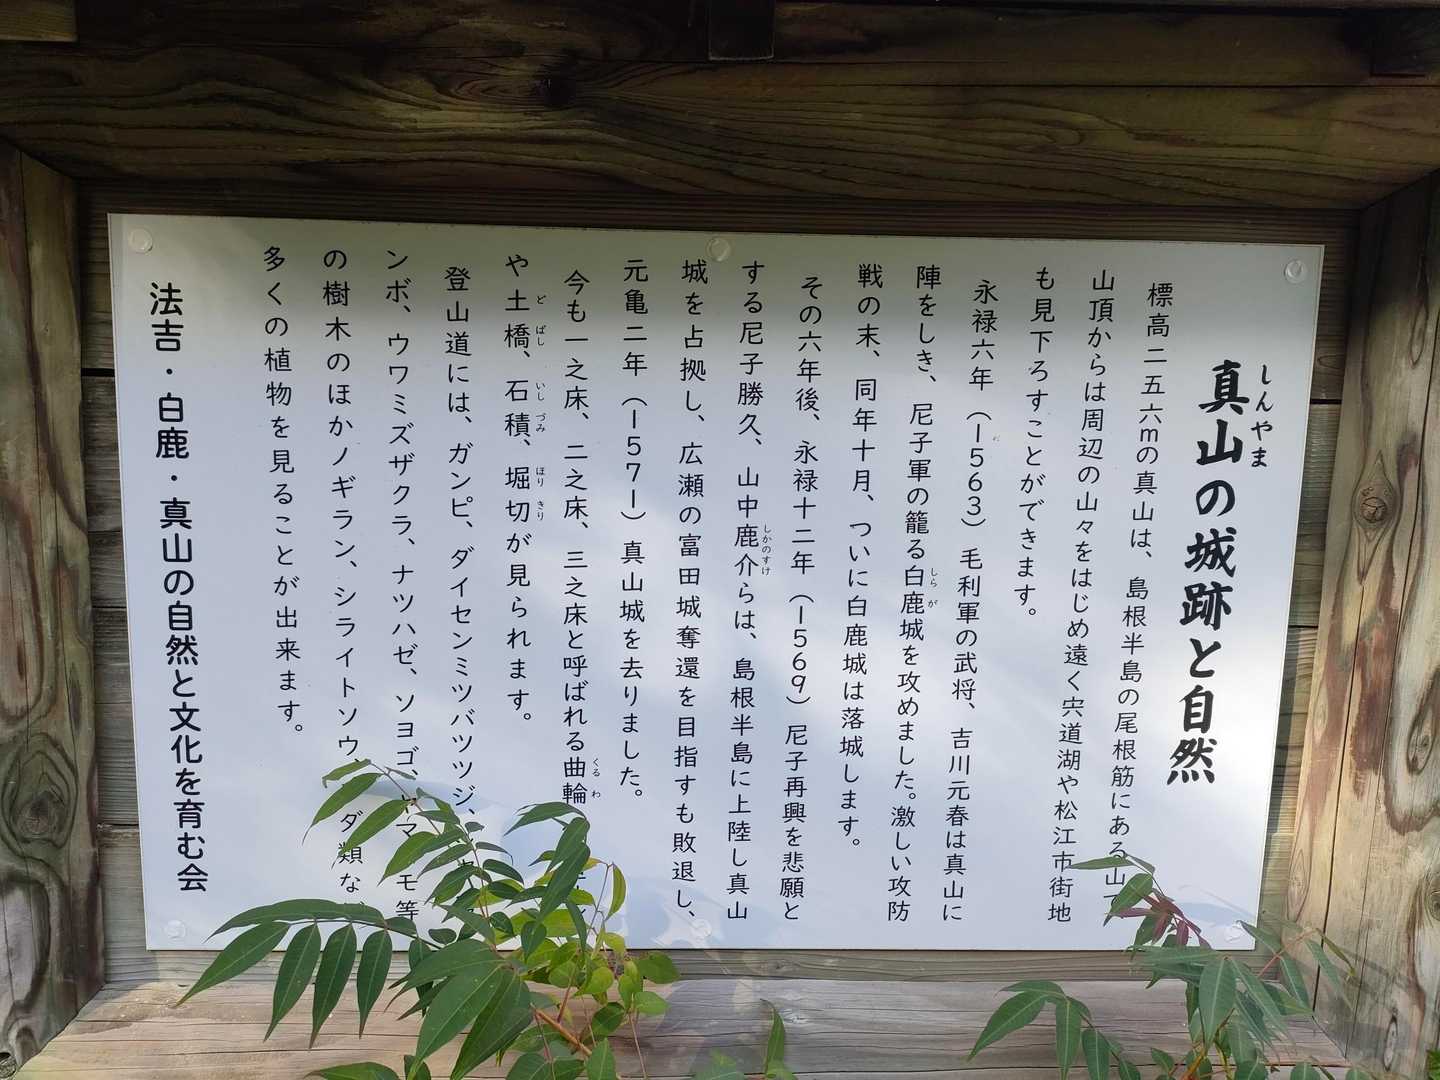 真山の城跡と自然
しんやま
標高二五六mの真山は、島根半島の尾根筋にある山で
山頂からは周辺の山々をはじめ遠く宍道湖や松江市街地
も見下ろすことができます。
永禄六年（1563）毛利軍の武将、吉川元春は真山に
陣をしき、尼子軍の籠る白鹿城を攻めました。激しい攻防
しらが
戦の末、同年十月、ついに白鹿城は落城します。
その六年後、永禄十二年（1569）尼子再興を悲願と
する尼子勝久、山中鹿介らは、島根半島に上陸し真山
しかのすけ
城を占拠し、広瀬の富田城奪還を目指すも敗退し、
元亀二年（1571）真山城を去りました。
今も一之床、二之床、三之床と呼ばれる曲輪
くるわ
や土橋、石積、堀切が見られます。
どばし いしづみ ほりきり
登山道には、ガンピ、ダイセンミツバツツジ、
ンボ、ウワミズザクラ、ナツハゼ、ソヨゴ、マモ等
の樹木のほかノギラン、シライトソウ、ダ類など
多くの植物を見ることが出来ます。
法吉・白鹿・真山の自然と文化を育む会